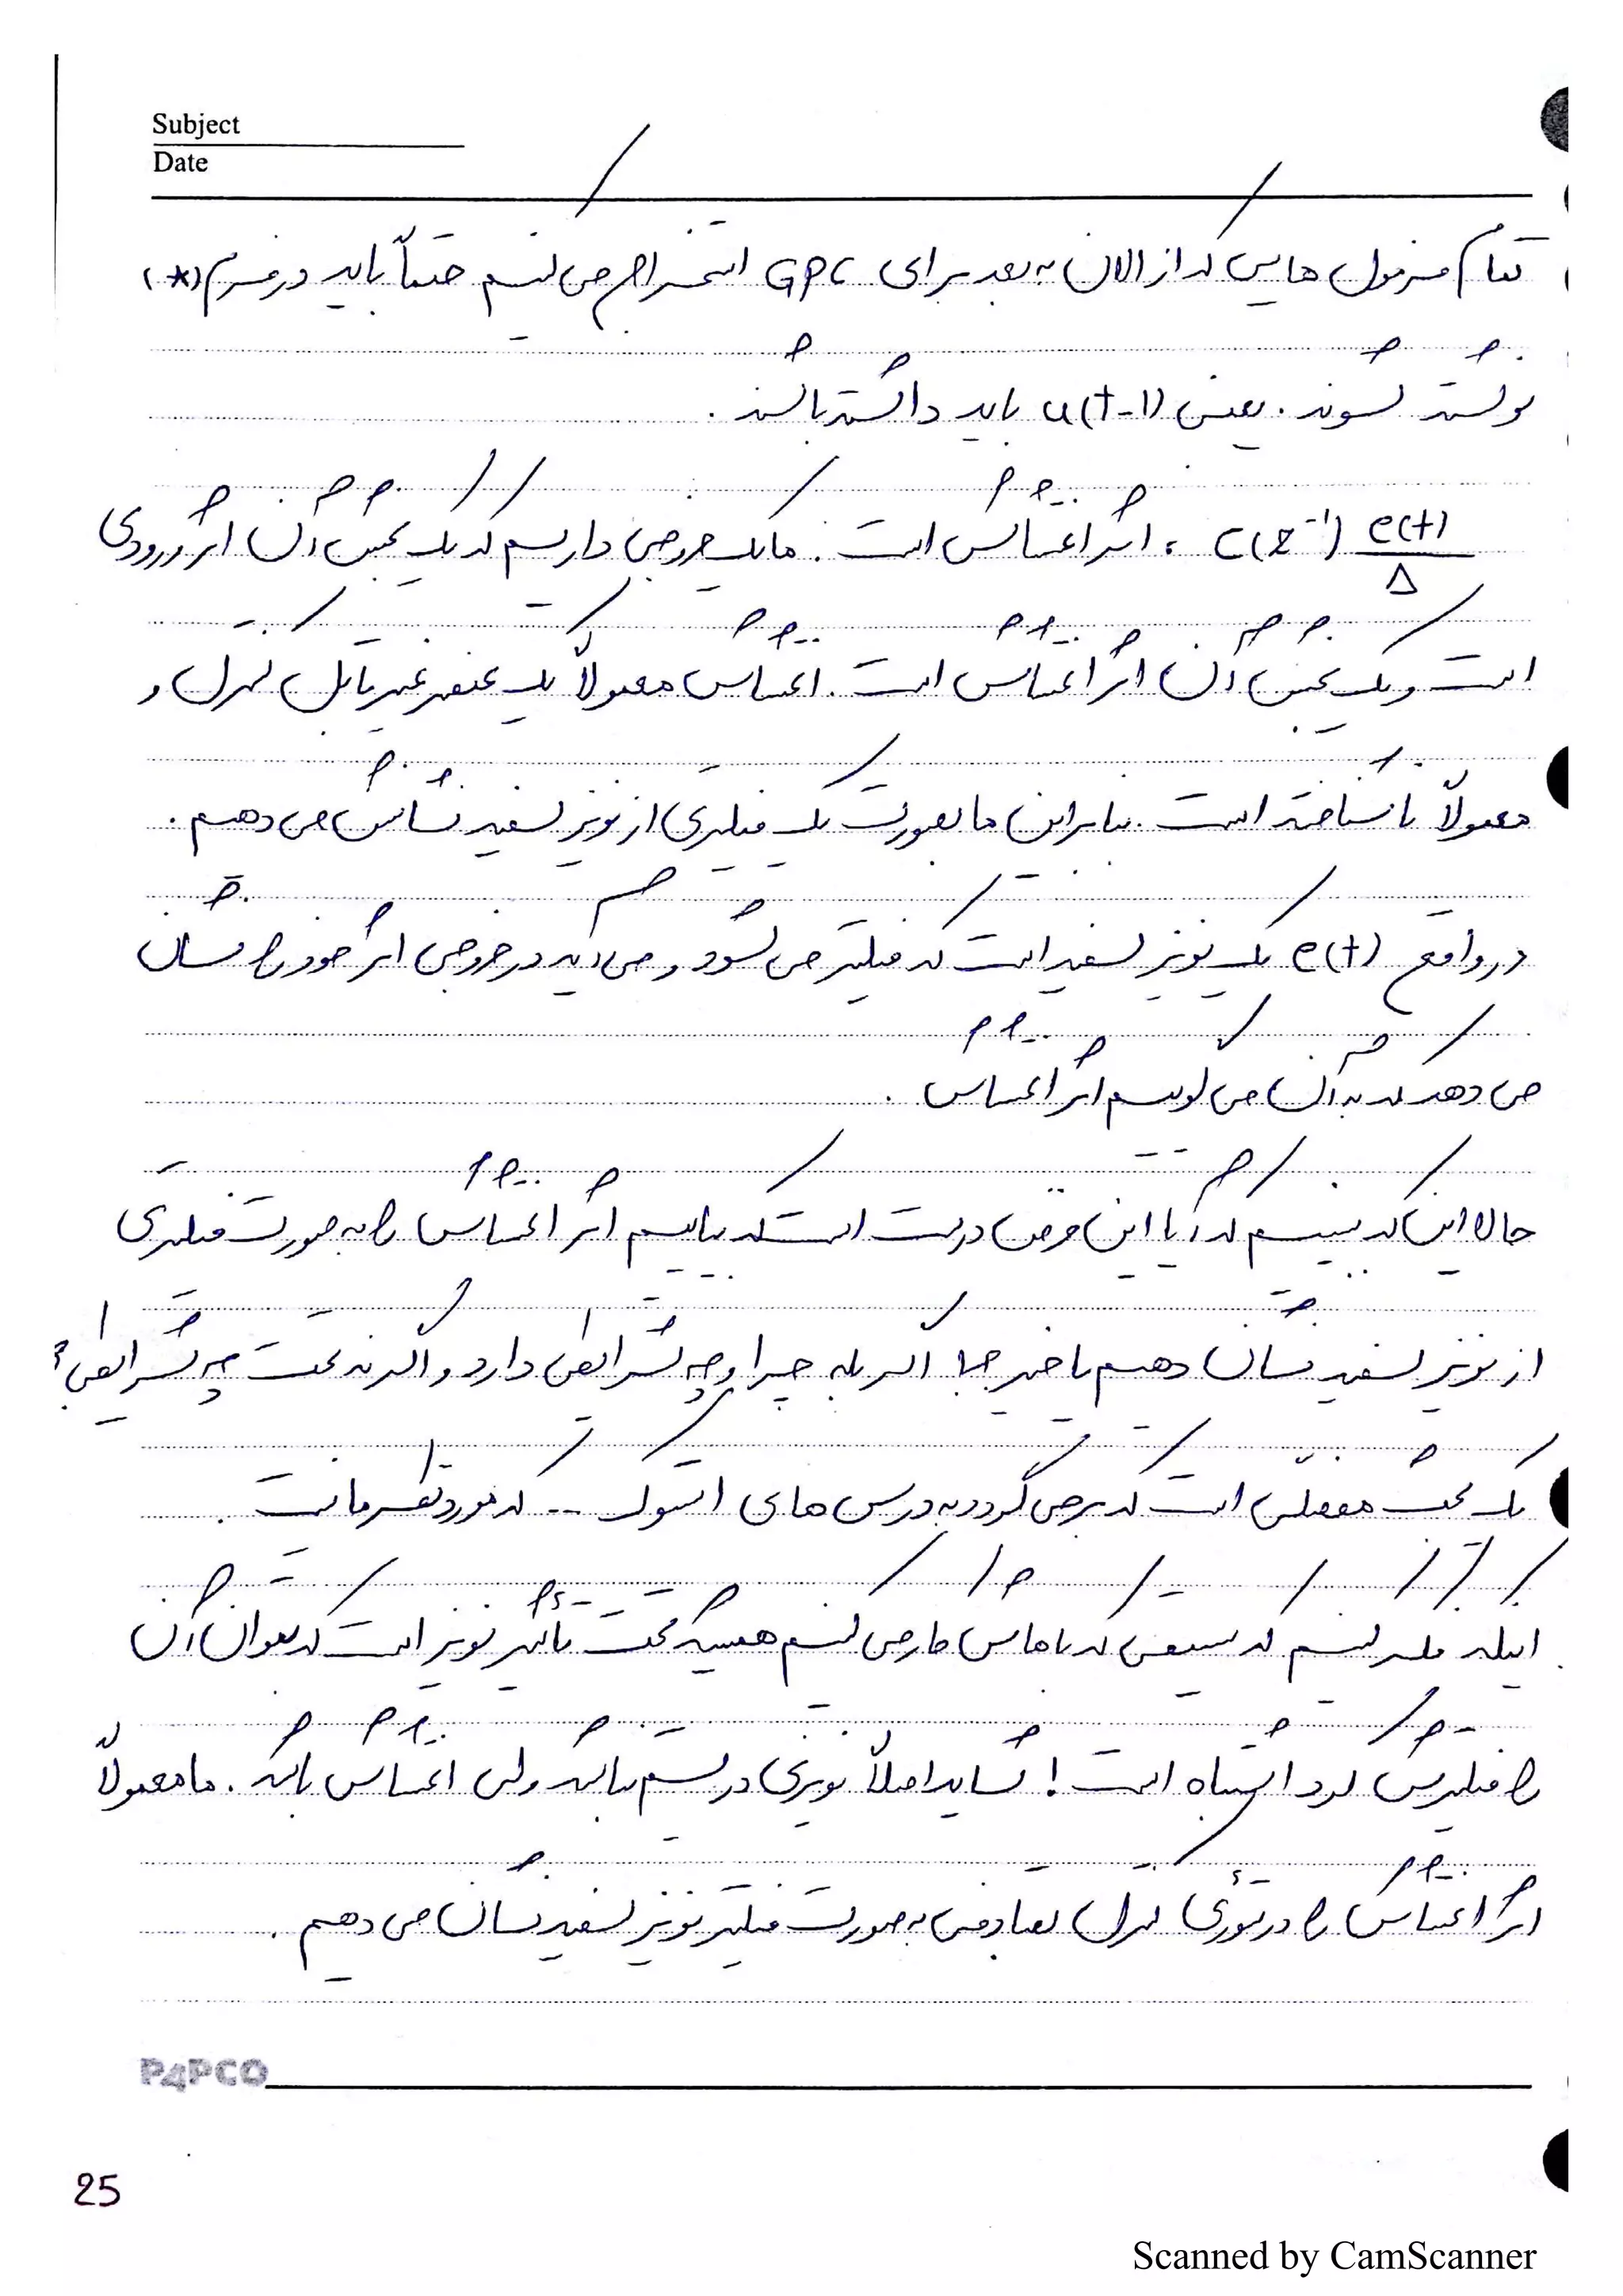 Subject
Date
تمام فرمول هایی که از الان به بعد برای GPC استخراج می کنیم حتماً باید در فرم (*)
نوشته شوند. یعنی u(t-1) باید داشته باشند.
C(z⁻¹) e(t)/Δ : اثر اغتشاش است. ما یک خروجی داریم که یک بخش آن اثر ورودی
است و یک بخش آن اثر اغتشاش است. اغتشاش معمولاً یک عنصر غیر قابل کنترل و
معمولاً ناشناخته است. بنابراین ما بصورت یک فیلتری از نویز سفید نشانش می دهیم.
در واقع e(t) یک نویز سفید است که فیلتر می شود و می آید در خروجی اثر خود را نشان
می دهد که به آن می گوییم اثر اغتشاش.
حالا این که ببینیم که آیا این فرض درست است که بیاییم اثر اغتشاش را به صورت فیلتری
از نویز سفید نشان دهیم یا خیر؟! اگر بله چرا و چه شرایطی دارد و اگر نه تحت چه شرایطی؟
یک بحث مفصلی است که بر می گردد به درس های استوک ... که مورد نظر ما نیست.
اینکه فکر کنیم که سیستمی که باهاش کار می کنیم همیشه تحت تأثیر نویز است که بتوان آن
را فیلترش کرد اشتباه است! شاید اصلاً نویزی در سیستم نباشد ولی اغتشاش باشد. ما معمولاً
اثر اغتشاش را در تئوری کنترل تصادفی به صورت فیلتر نویز سفید نشان می دهیم.
PAPCO
25
Scanned by CamScanner